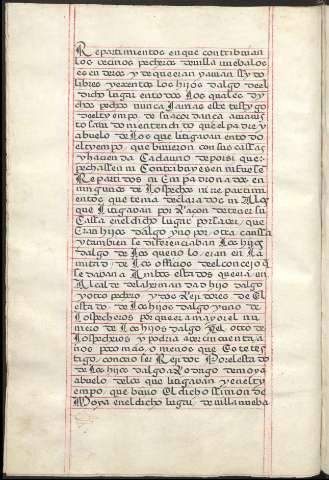 Repartimientos en que contribuian
los vecinos pecheros de villanueba los
es en deros y de que eran y auian ssydo
libres y exentos los hijos dalgo de el
dicho lugar en todos los quales dy
chos pedro nunca Jamas este testigo
de el tyempo de su acordanca auia uis
to sauido ni entendido que el padre y
abuelo de los que litigavan en todo
el tyempo que bivieron con sus cassas
y hacienda Cada uno de por si que
pechassen ni Contribuyesen ni fuesse
Repartidos ni Enpadronados en
ningunos de los pechos ni repartimi
entos que tenia declarados ni Al
que litigavan por Racon de tener su
Cassa en el dicho lugar por saver que
Eran hijos dalgo y no por otra caussa
y tambien se diferenciaban Los hijos
dalgo de Los que no lo eran en La
mitad de Los officios del concejo q
se davan a Ambos estados que era un
Alcalde de la hermandad hijo dalgo
y otro pechero y dos Rejidores de El
estado de Los hijos dalgo y uno de
Los pecheros por que era mayor el nu
mero de Los hijos dalgo Que el otro de
Los pecheros y podria acer cinquenta a
ños poco mas o menos que Este tes
tigo conocio ser Rejidor Por el estado
de Los hijos dalgo a Rodrigo de moya
abuelo de los que litigavan y en el ty
empo que bivio El dicho ssimon de
Moya en el dicho lugar de villanueba